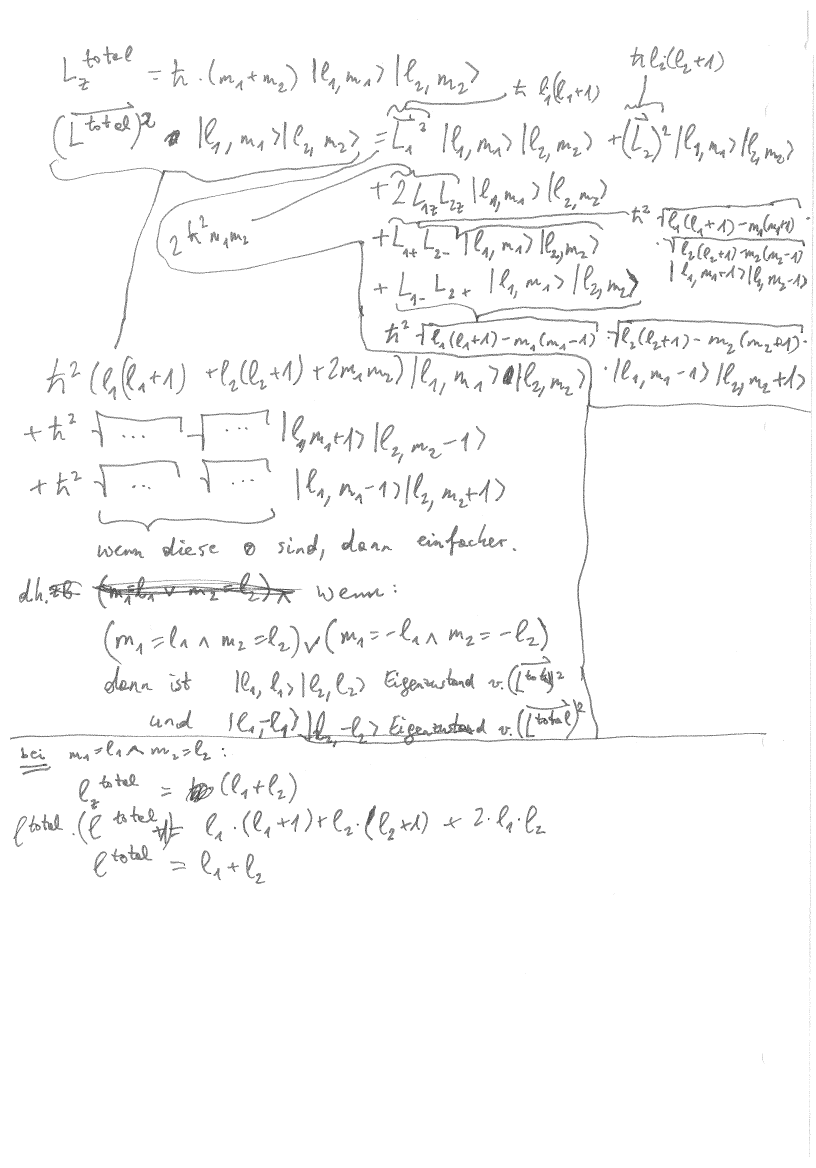 L_z^total = ħ · (m₁+m₂) |l₁,m₁⟩ |l₂,m₂⟩
ħ l₁(l₁+1)
ħ l₂(l₂+1)
(L^total)² · |l₁,m₁⟩|l₂,m₂⟩ = L₁² |l₁,m₁⟩|l₂,m₂⟩ + (L₂)² |l₁,m₁⟩|l₂,m₂⟩
+ 2 L₁z L₂z |l₁,m₁⟩|l₂,m₂⟩
2 ħ² m₁m₂
+ L₁₊ L₂₋ |l₁,m₁⟩|l₂,m₂⟩
ħ² √(l₁(l₁+1) − m₁(m₁+1)) ·
· √(l₂(l₂+1) − m₂(m₂−1))
|l₁, m₁+1⟩|l₂, m₂−1⟩
+ L₁₋ L₂₊ |l₁,m₁⟩|l₂,m₂⟩
ħ² √(l₁(l₁+1) − m₁(m₁−1)) · √(l₂(l₂+1) − m₂(m₂+1)) ·
· |l₁, m₁−1⟩|l₂, m₂+1⟩
ħ² (l₁(l₁+1) + l₂(l₂+1) + 2m₁m₂) |l₁,m₁⟩ |l₂,m₂⟩
+ ħ² √... √... |l₁,m₁+1⟩|l₂,m₂−1⟩
+ ħ² √... √... |l₁,m₁−1⟩|l₂,m₂+1⟩
wenn diese 0 sind, dann einfacher.
dh. zB (m₁=l₁ ∨ m₂=l₂) ∧ wenn:
(m₁=l₁ ∧ m₂=l₂) ∨ (m₁=−l₁ ∧ m₂=−l₂)
dann ist |l₁,l₁⟩|l₂,l₂⟩ Eigenzustand v. (L^total)²
und |l₁,−l₁⟩|l₂,−l₂⟩ Eigenzustand v. (L^total)²
bei m₁=l₁ ∧ m₂=l₂:
l_z^total = (l₁+l₂)
l^total · (l^total+1) = l₁·(l₁+1) + l₂·(l₂+1) + 2·l₁·l₂
l^total = l₁+l₂